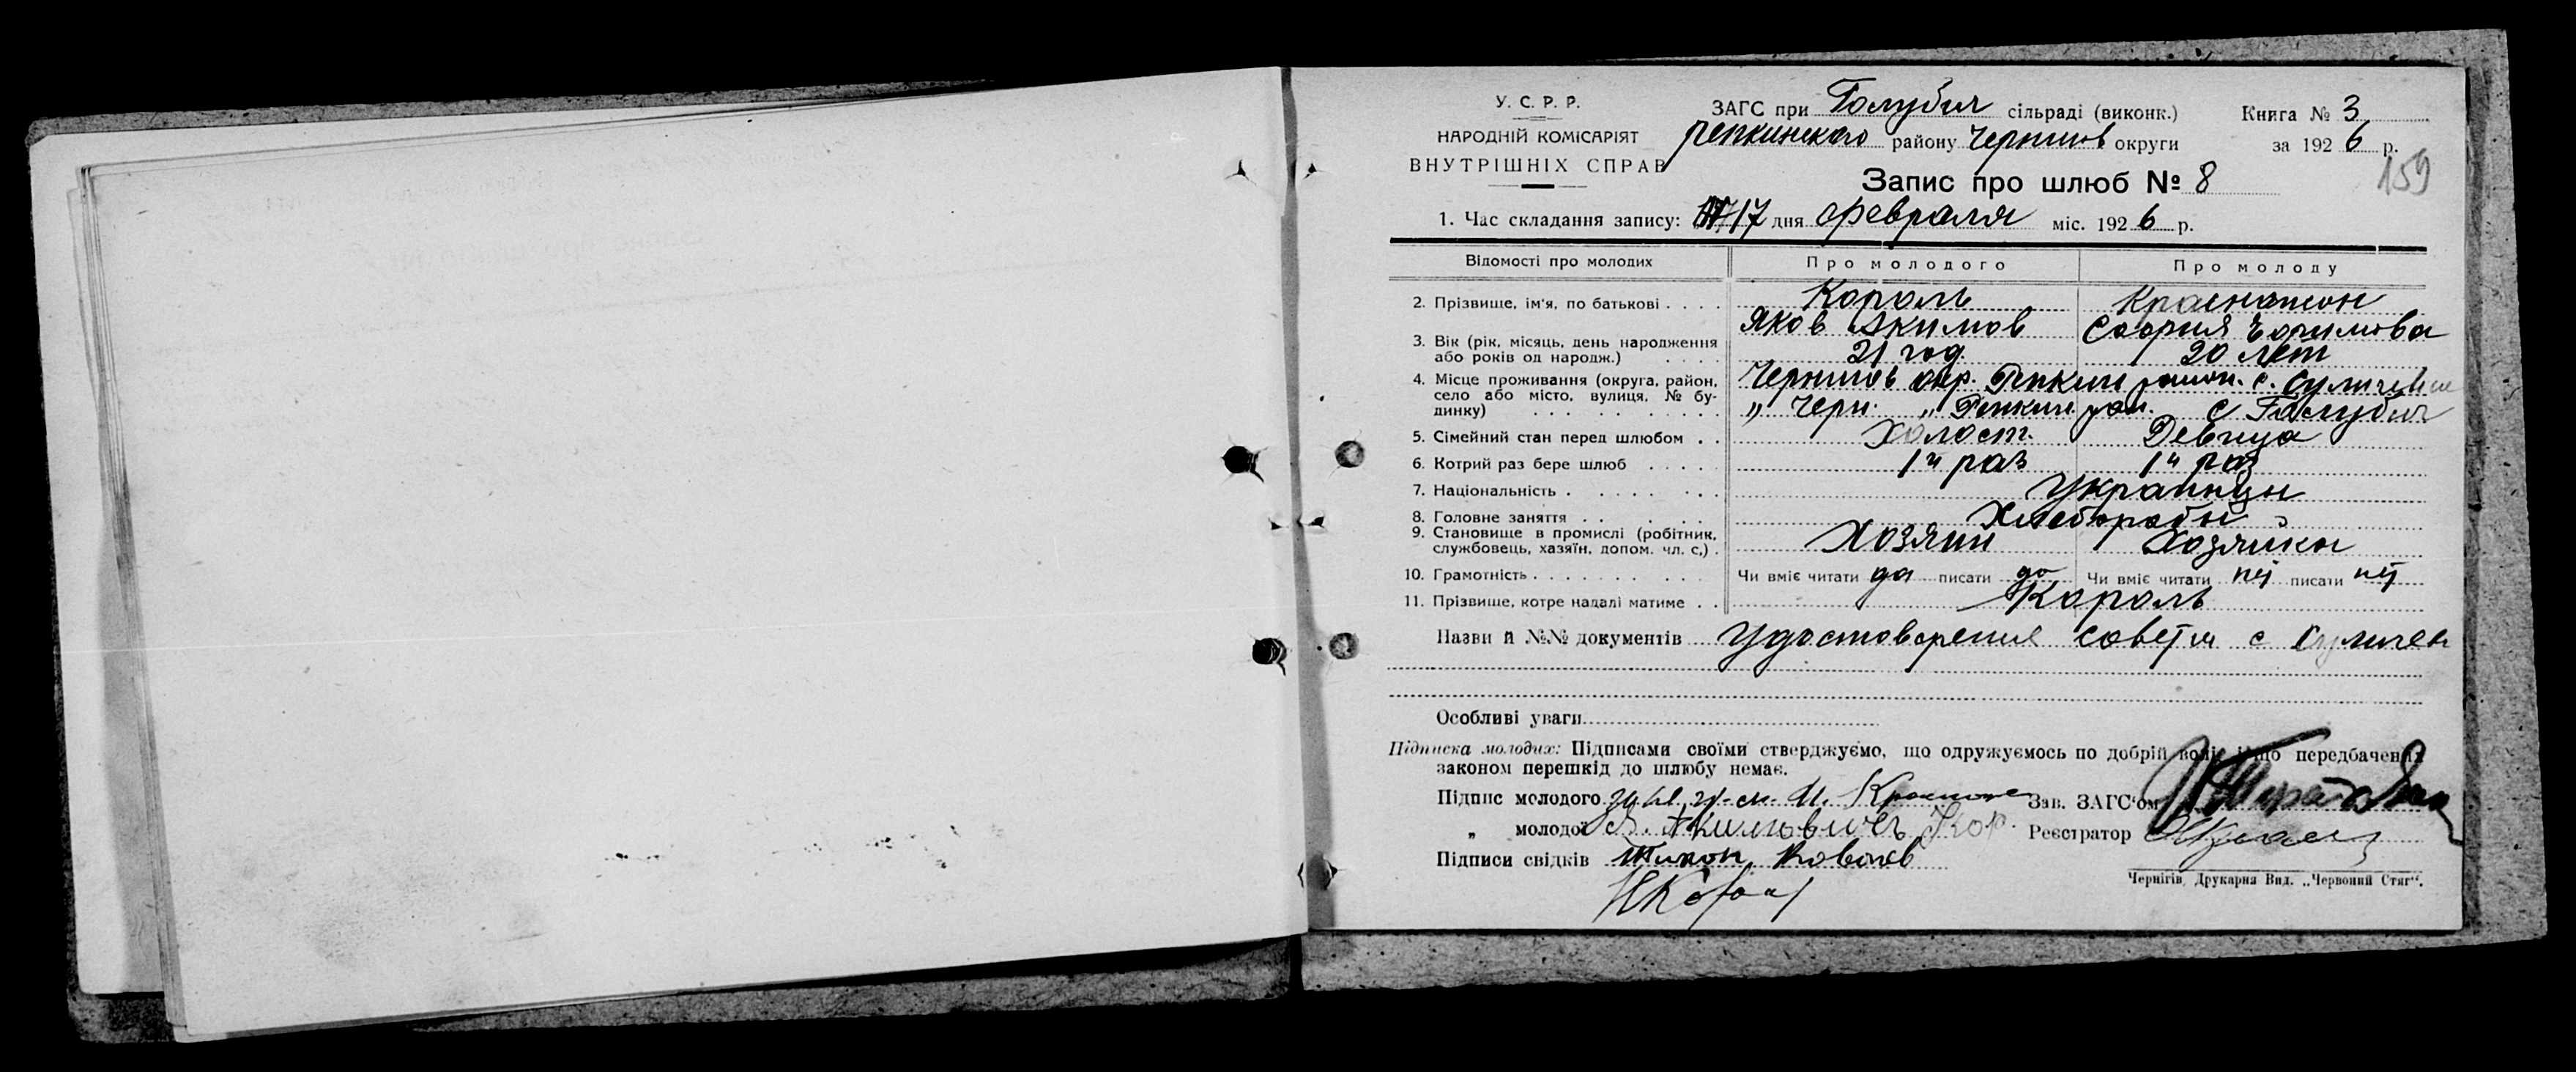 У. С. Р. Р.
НАРОДНІЙ КОМІСАРІЯТ
ВНУТРІШНІХ СПРАВ
ЗАГС при Голубич сільраді (виконк.) Книга № 3
репкинского району Чернигов округи за 1926 р.
159
Запис про шлюб № 8
1. Час складання запису: 17 дня февраля міс. 1926 р.
Відомості про молодих Про молодого Про молоду
2. Прізвище, ім'я, по батькові . . . . Король Краснажон
Яков Акимов София Ефимова
3. Вік (рік, місяць, день народження
або років од народж.) . . . . 21 год. 20 лет
4. Місце проживання (округа, район, Чернигов окр. Репкин район. с.
село або місто, вулиця, № бу-
динку) . . . . . . . . . . „ Черн. „ Репкин рай. с Голубич
5. Сімейний стан перед шлюбом . . Холост. Девица
6. Котрий раз бере шлюб . . . . . 1й раз 1й раз
7. Національність . . . . . . . . Украинцы
8. Головне заняття . . . . . . Хлеборобы
9. Становище в промислі (робітник,
службовець, хазяїн, допом. чл. с.) . Хозяин Хозяйка
10. Грамотність . . . . . . . . . . Чи вміє читати да писати да Чи вміє читати нет писати нет
11. Прізвище, котре надалі матиме . . Король
Назви й №№ документів Удостоверение совета с
Особливі уваги
Підписка молодих: Підписами своїми стверджуємо, що одружуємось по добрій волі і що передбачених
законом перешкід до шлюбу немає.
Підпис молодого за не гр-см. И. Зав. ЗАГС'ом
„ молодої Я. Акимовичъ Кор. Реєстратор
Підписи свідків Тихон Ковалев
Чернігів, Друкарня Вид. „Червоний Стяг".